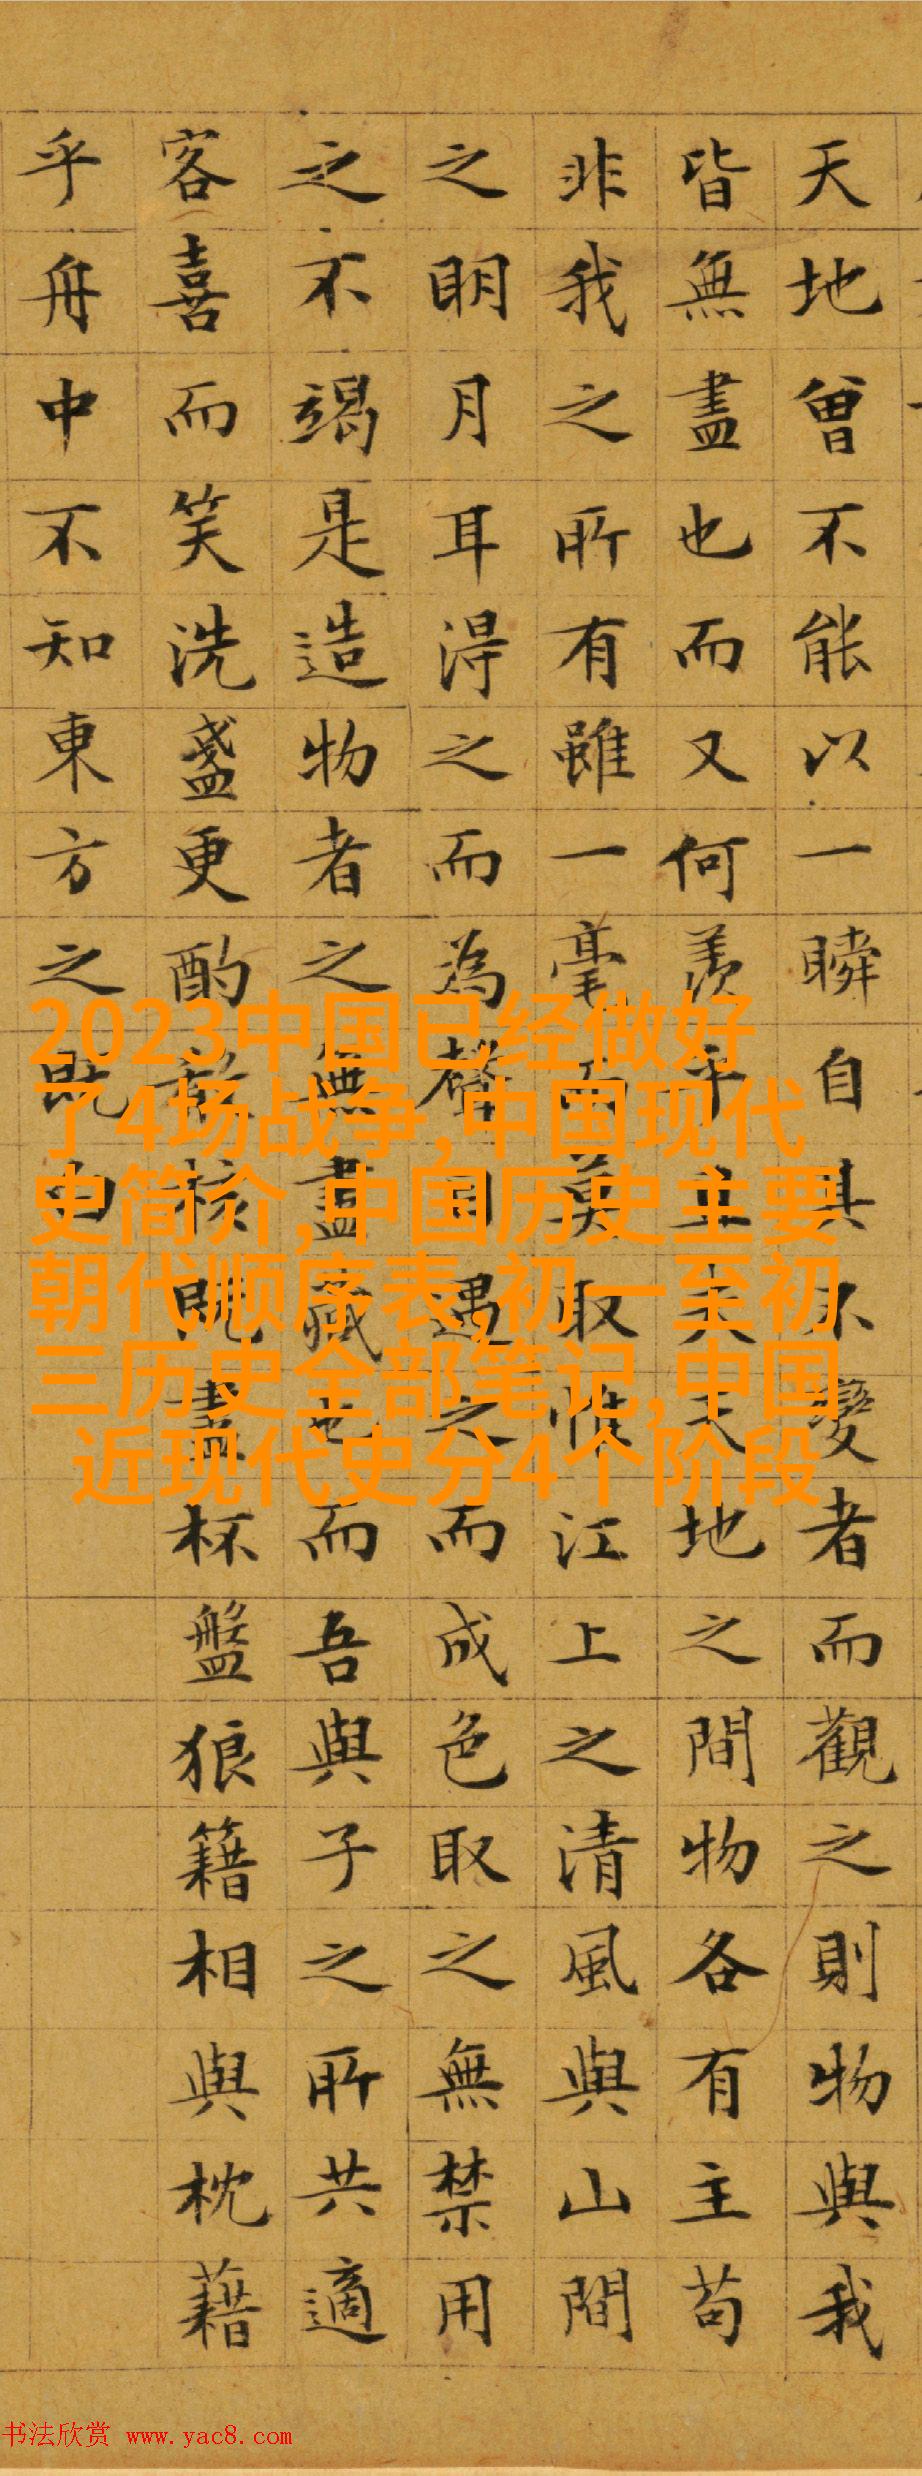 天地曾不能以一瞬自其不變者而觀之則物與我
皆無盡也而又何羨乎且夫天地之間物各有主苟
非我之所有雖一毫而莫取惟江上之清風與山間
之明月耳得之而為聲目遇之而成色取之無禁用
之不竭是造物者之無盡藏也而吾與子之所共適
客喜而笑洗盞更酌肴核既盡杯盤狼籍相與枕藉
乎舟中不知東方之既白
2023中国已经做好
了4场战争,中国现代
史简介,中国历史主要
朝代顺序表,初一至初
三历史全部笔记,中国
近现代史分4个阶段
书法欣赏 www.yac8.com